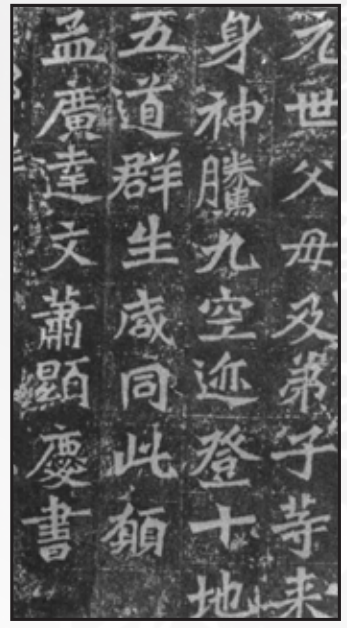 元世父母及弟子等来
身神騰九空迹登十地
五道群生咸同此願
孟廣達文蕭顯慶書